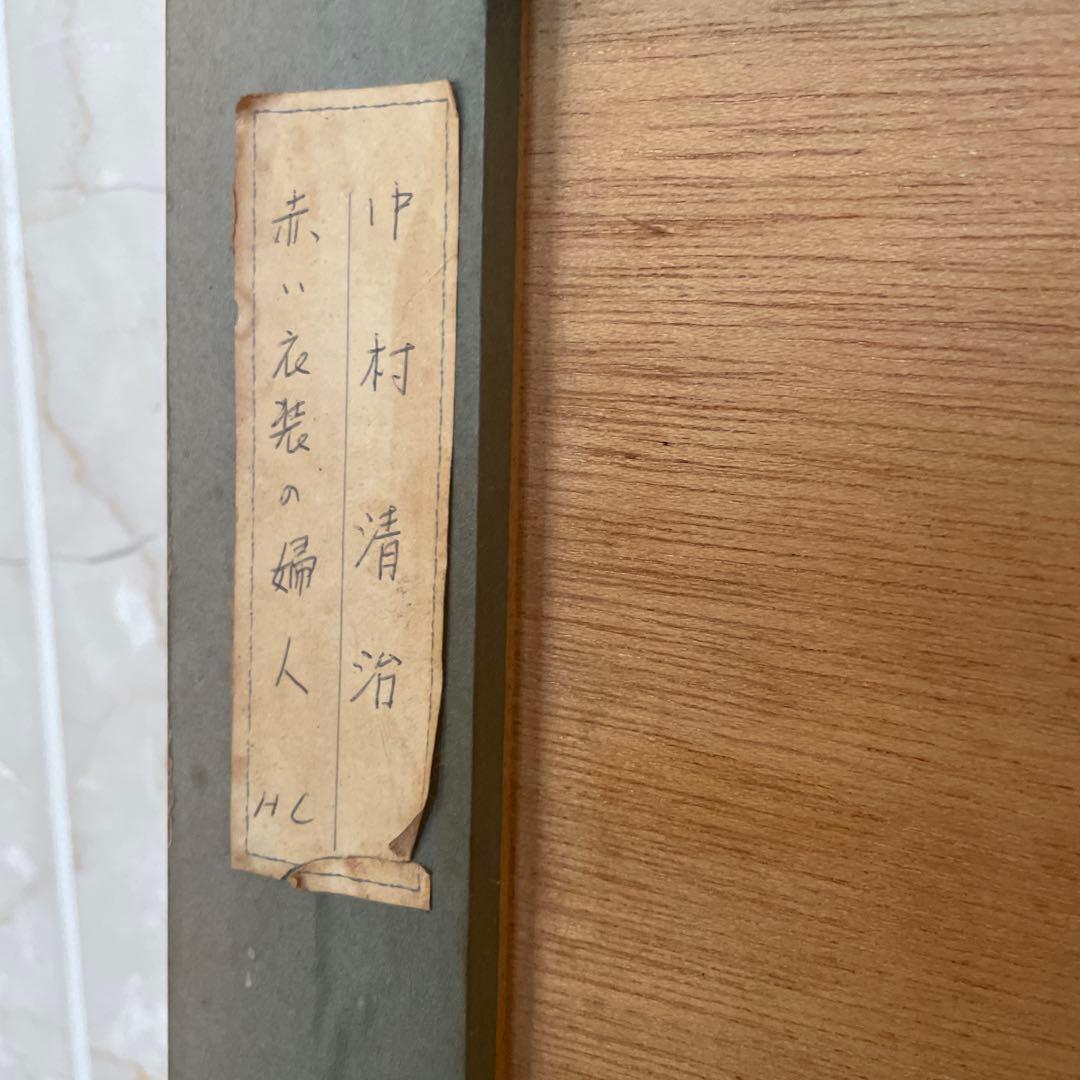 中村清治
赤い衣装の婦人
HC